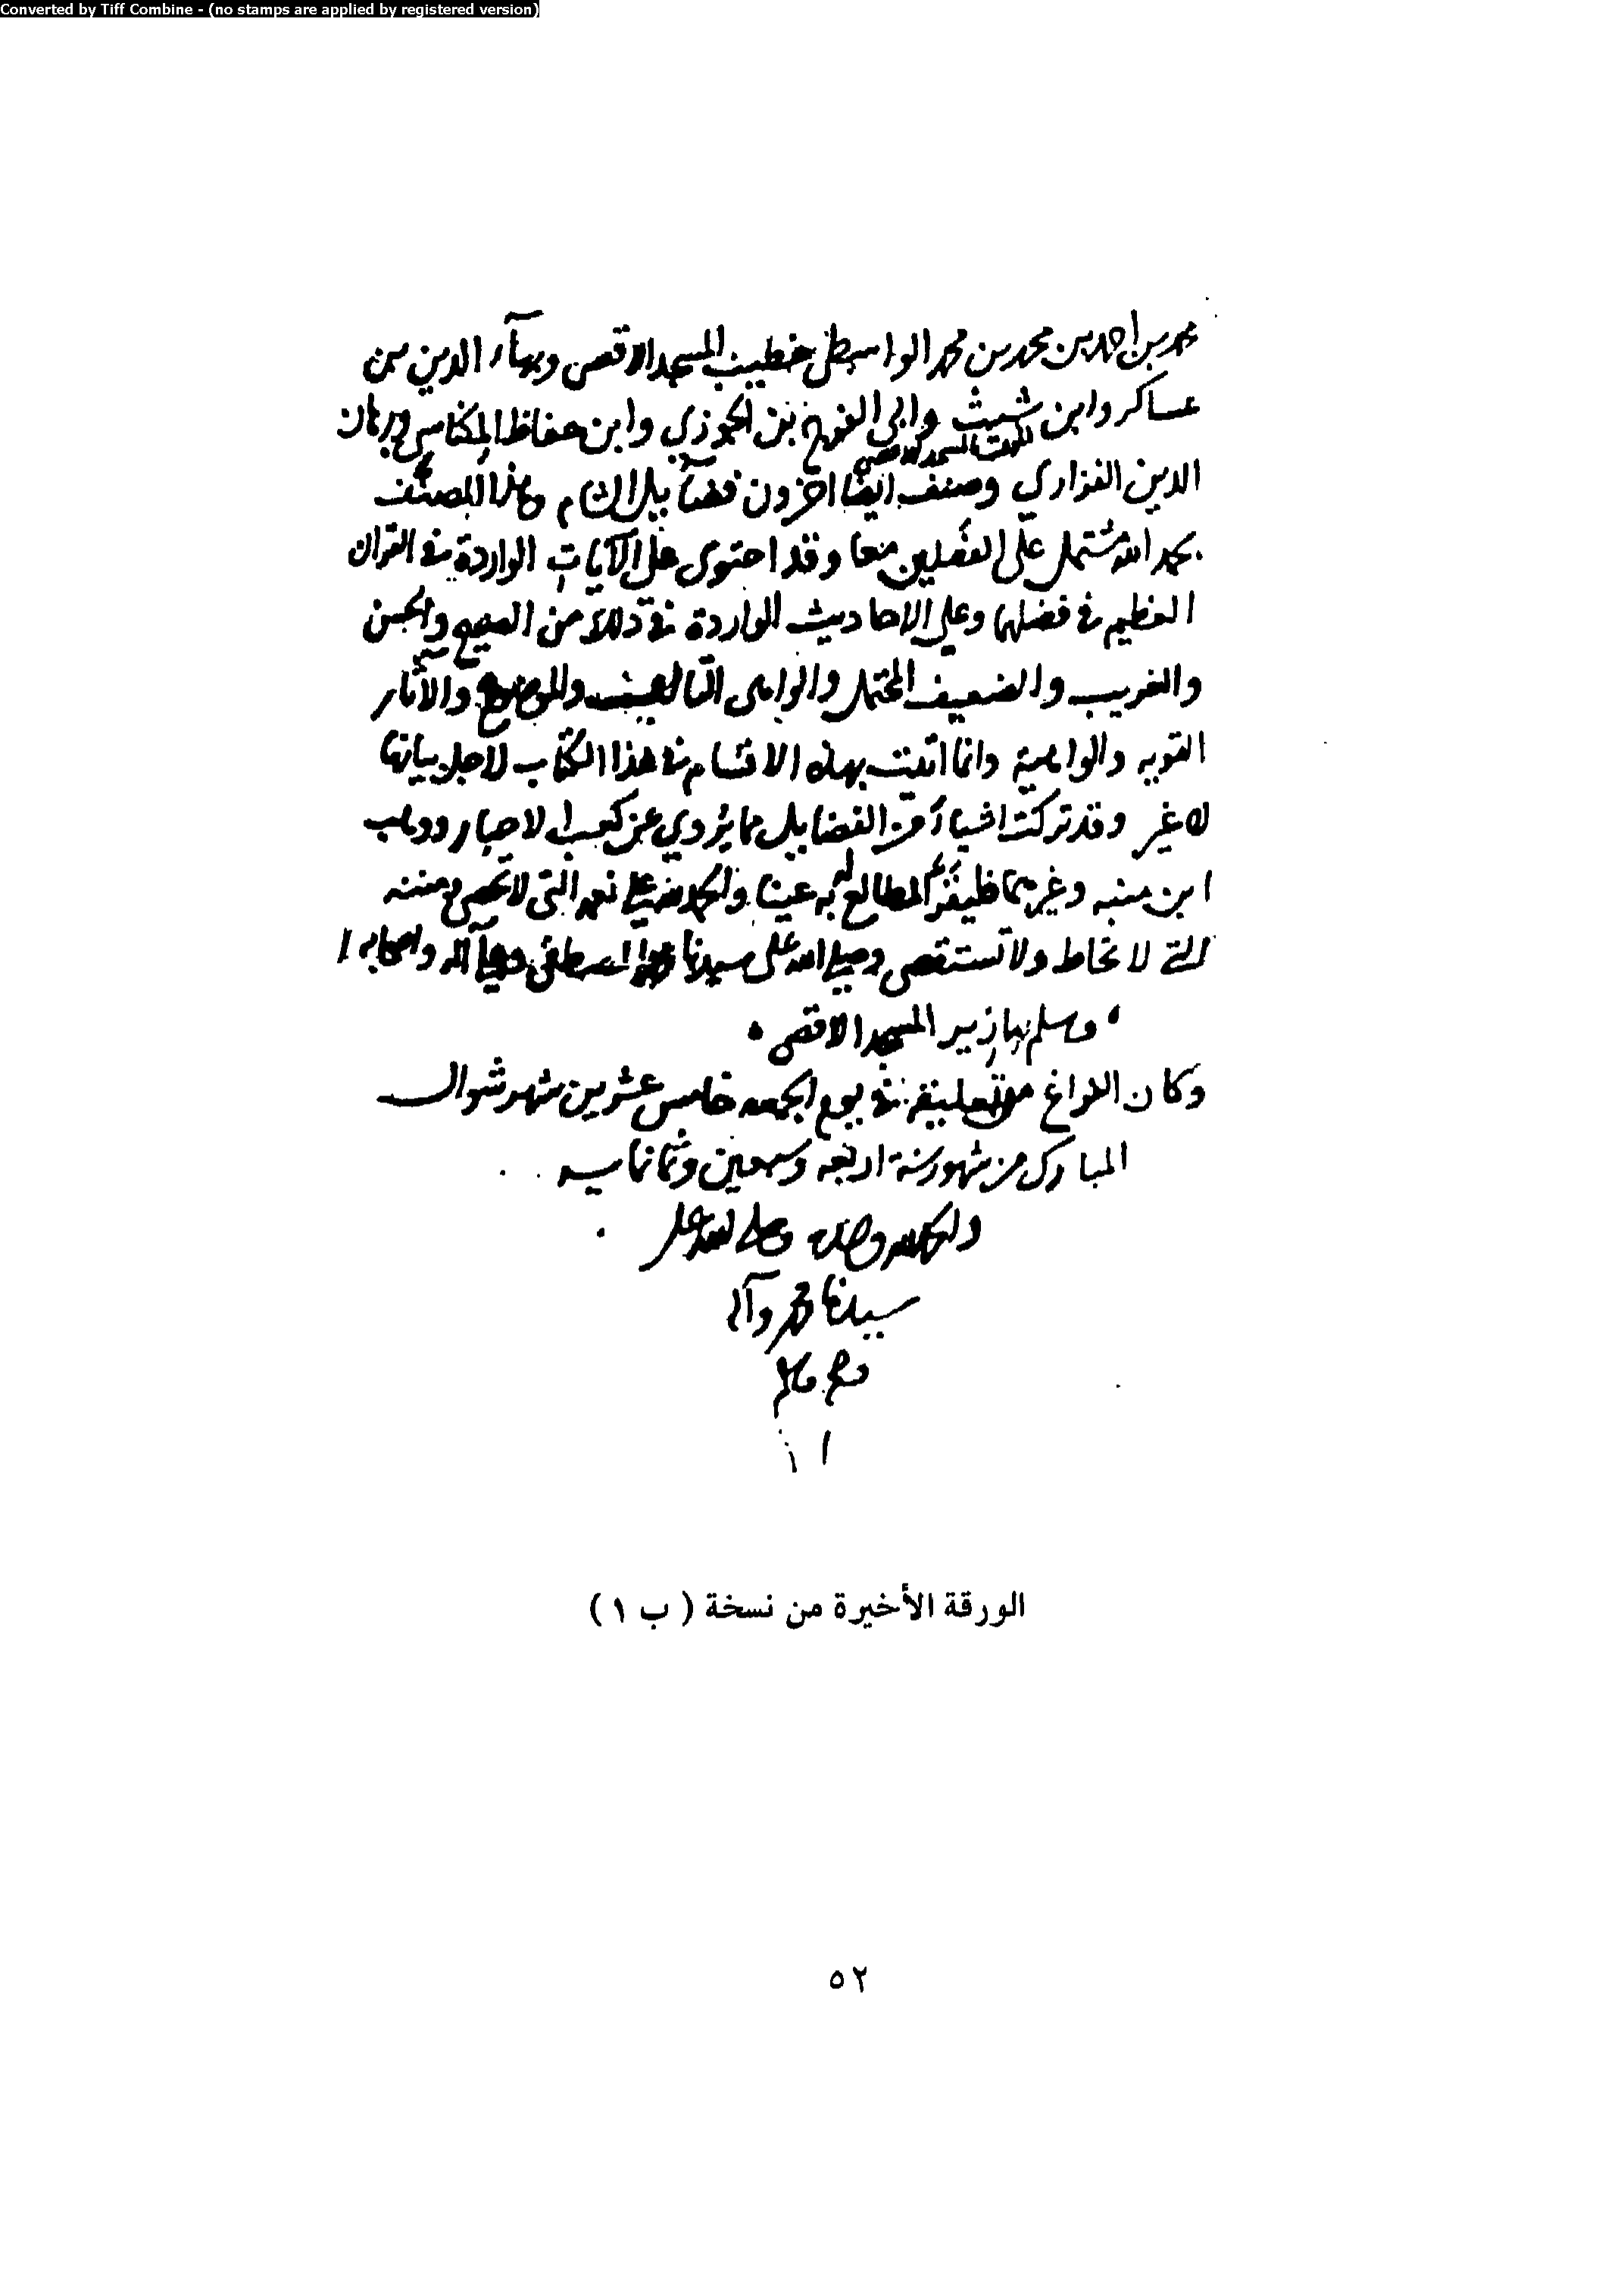 Converted by Tiff Combine - (no stamps are applied by registered version)
محمد بن احمد بن محمد بن محمد الواسطي خطيب المسجد الاقصى وبهآء الدين بن
عساكر وابن شيث وابي الفرج بن الجوزي وابن حفاظ المكناسي وبرهان
الدين الفزاري وصنف ايضا اخرون فضآيل الشام وهذا المصنف
بحمد الله مشتمل على الفضلين معا وقد احتوى على الآيات الواردة في القران
العظيم في فضلها وعلى الاحاديث الواردة في ذلك من الصحيح والحسن
والغريب والضعيف المحتمل والواهي التالف والموضوع والآثار
القويه والواهية وانما اتيت بهذه الاقسام في هذا الكتاب لاجل بيانها
لا غير وقد تركت اشيآء من الفضايل مما يروي عن كعب الاحبار ووهب
ابن منبه وغيرهما المطالع به عينا والحمد لله على نعمه التي لا تحصى ومننه
التي لا تحاط ولا تستقصى وصلى الله على سيدنا محمد المصطفى وعلى آله واصحابه
وسلم المسجد الاقصى
وكان الفراغ من تعليقه في يوم الجمعه خامس عشرين شهر شوال
المبارك من شهور سنة اربعه وسبعين وثمانمايه
والحمد لله وحده وصلى الله على
سيدنا محمد وآله
وصحبه وسلم
الورقة الأخيرة من نسخة ( ب ١ )
٥٢